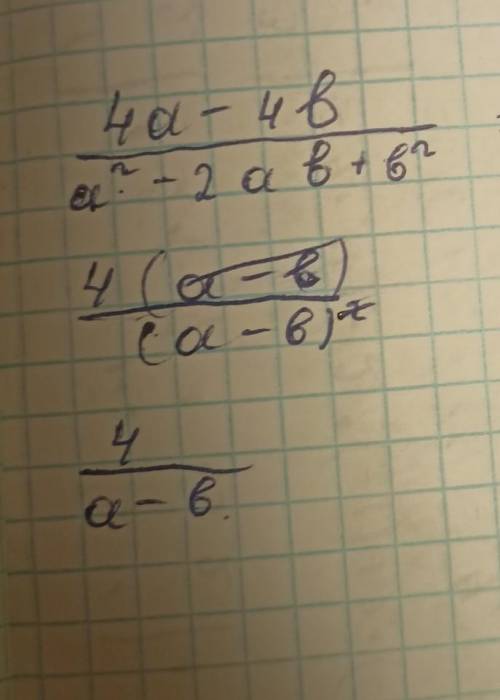 4a - 4b
a² - 2ab + b²
4(a - b)
(a - b)²
4
a - b.